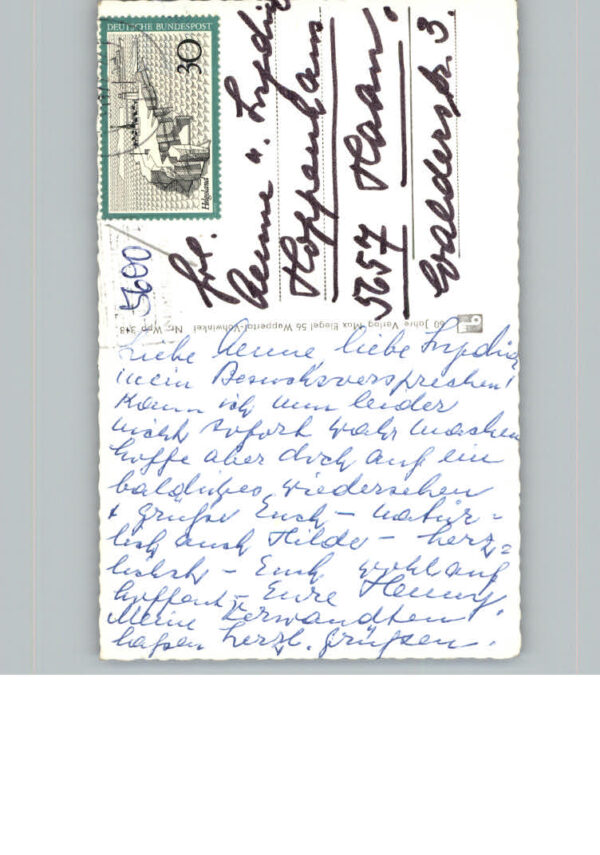 DEUTSCHE BUNDESPOST
30
Helgoland
5600
Frl.
Aenne u.
Hoppenhaus
5657 Haan.
Walderstr. 3.
60 Jahre Verlag Max Biegel 56 Wuppertal-Vohwinkel Nr. Wpb 348
Liebe Aenne, liebe
mein Besuchsversprechen
kann ich nun leider
nicht sofort wahr machen
hoffe aber doch auf ein
baldiges wiedersehen
+ grüße Euch – natür=
lich auch Hilde – herz=
lichst – Euch wohlauf
hoffent – Eure Henny.
Meine Verwandten
laßen herzl. grüßen.